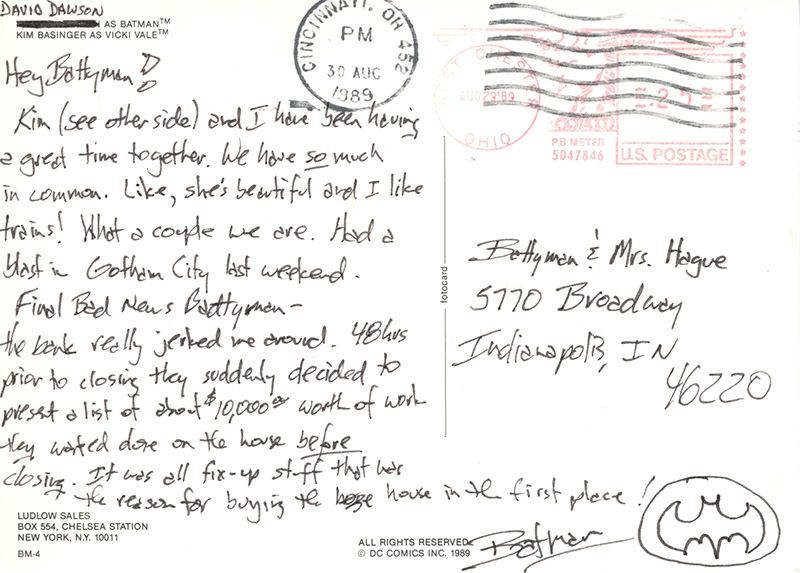 DAVID DAWSON
AS BATMAN™
KIM BASINGER AS VICKI VALE™
Hey Battyman!
Kim (see other side) and I have been having
a great time together. We have so much
in common. Like, she's beautiful and I like
trains! What a couple we are. Had a
blast in Gotham City last weekend.
Final Bad News Battyman -
the bank really jerked me around. 48hrs
prior to closing they suddenly decided to
present a list of about $10,000 worth of work
they wanted done on the house before
closing. It was all fix-up stuff that was
the reason for buying the house in the first place!
Batman
LUDLOW SALES
BOX 554, CHELSEA STATION
NEW YORK, N.Y. 10011
BM-4
ALL RIGHTS RESERVED
© DC COMICS INC. 1989
fotocard
CINCINNATI, OH 452
PM
30 AUG
1989
WEST CHESTER
AUG 29 '89
OHIO
PB METER
5047846
U.S. POSTAGE
Battyman & Mrs. Hague
5770 Broadway
Indianapolis, IN
46220